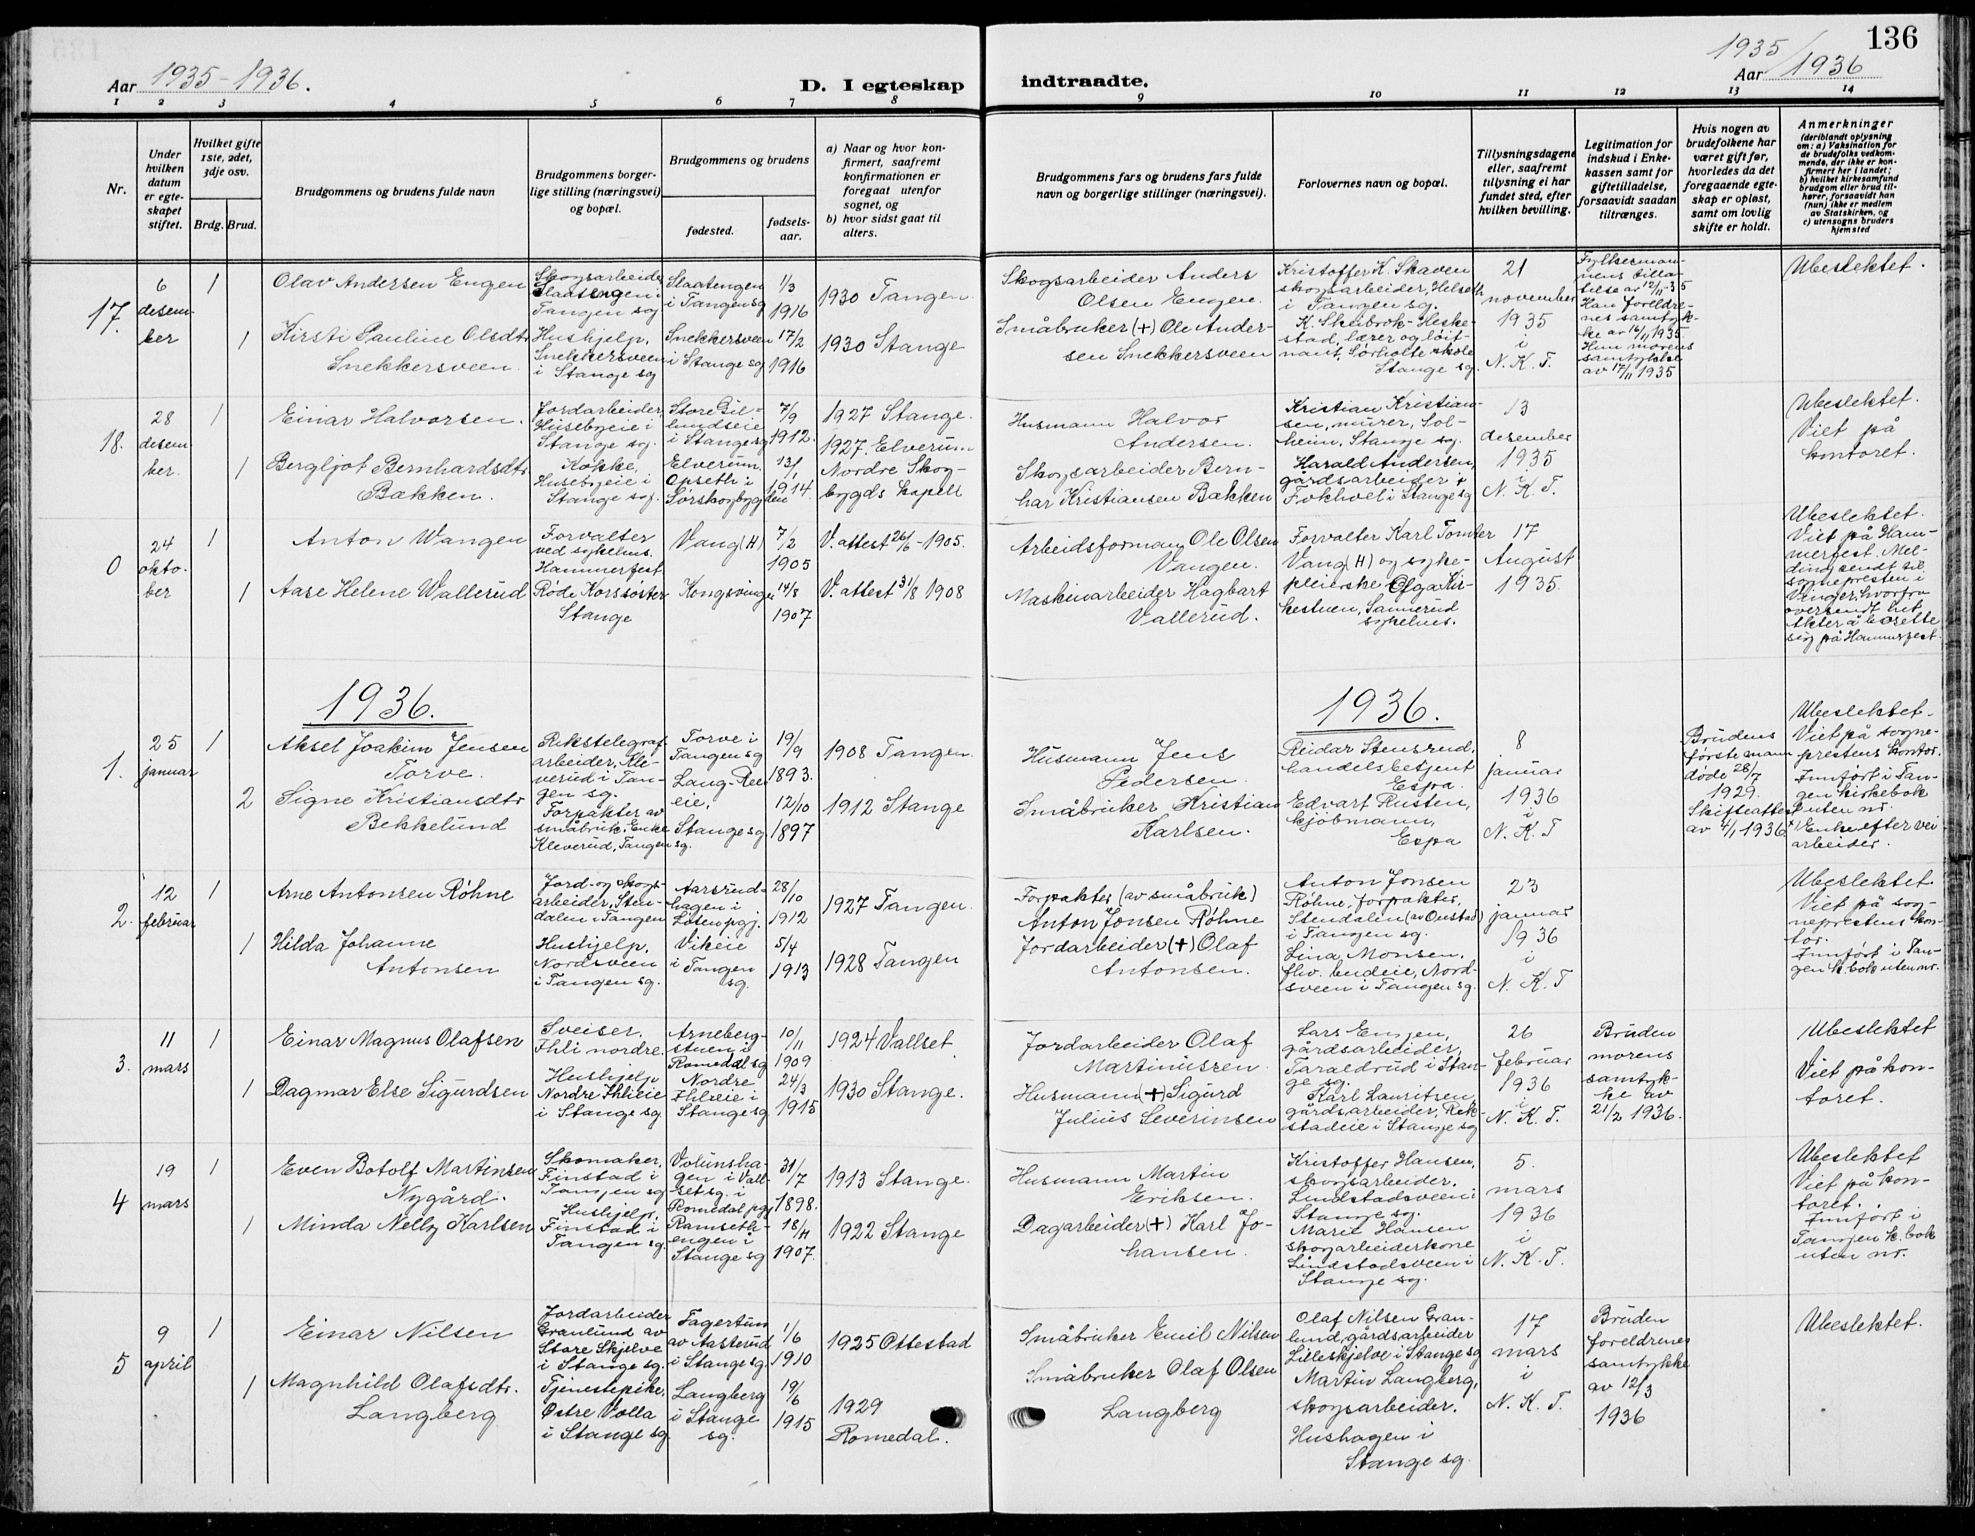 136
Aar 1935-1936.
D. I egteskap indtraadte.
1935
Aar 1936
1 2 3 4 5 6 7 8
9 10 11 12 13 14
Nr.
Under hvilken datum er egte-skapet stiftet.
Hvilket gifte 1ste, 2det, 3dje osv.
Brdg. Brud.
Brudgommens og brudens fulde navn
Brudgommens borger-lige stilling (næringsvei) og bopæl.
Brudgommens og brudens
fødested.
fødsels-aar.
a) Naar og hvor kon-firmert, saafremt konfirmationen er foregaat utenfor sognet, og
b) hvor sidst gaat til alters.
Brudgommens fars og brudens fars fulde navn og borgerlige stillinger (næringsvei).
Forlovernes navn og bopæl.
Tillysningsdagene eller, saafremt tillysning ei har fundet sted, efter hvilken bevilling.
Legitimation for indskud i Enke-kassen samt for giftetilladelse, forsaavidt saadan tiltrænges.
Hvis nogen av brudefolkene har været gift før, hvorledes da det foregaaende egte-skap er opløst, samt om lovlig skifte er holdt.
Anmerkninger
(deriblandt oplysning om: a) Vaksination for de brudefolks vedkom-mende, der ikke er kon-firmert her i landet;
b) hvilket kirkesamfund brudgom eller brud til-hører, forsaavidt han (hun) ikke er medlem av Statskirken, og
c) utensogns bruders hjemsted
17. 6 desem-ber 1
Olav Andersen Engen
Skogsarbeider Slaatengen i Tangen sg
Slaatengen i Tangen sg
1/3 1916
1930 Tangen.
Skogsarbeider Anders Olsen Engen.
Kristoffer K. Skaven skogsarbeider, Helseth i Tangen sg.
21 november 1935 i N. K. T.
Fylkesman-nens tilla-telse av 12/11-35
Han foreldre-nes samtyk-ke av 16/11 1935
Hun morens samtykke av 17/11 1935
Ubeslektet.
1
Kirsti Pauline Olsdtr Snekkersveen.
Hushjelp, Snekkersveen i Stange sg
Snekkersveen i Stange sg
17/2 1916
1930 Stange
Småbruker (+) Ole Ander-sen Snekkersveen
K. Skeibrok-Heske-stad, lærer og løit-nant, Sørholte skole Stange sg.
18. 28 desem-ber. 1
Einar Halvorsen.
Jordarbeider, Husebyeie i Stange sg.
Store Gil-lundseie i Stange sg
7/9 1912.
1927 Stange.
Husmann Halvor Andersen.
Kristian Kristian-sen, murer, Sol-heim, Stange sg.
13 desember 1935 i N. K. T.
Ubeslektet. Viet på kontoret.
1
Bergljot Bernhardsdtr Bakken.
Kokke, Husebyeie i Stange sg.
Elverum, Opseth i Sørskogbygden
13/1 1914.
1927. Elverum Nordre Skog-bygds kapell
Skogsarbeider Bern-har Kristiansen Bakken
Harald Andersen, gårdsarbeider, Fokhol i Stange sg
0 24 okto-ber 1
Anton Wangen
Forvalter ved sykehus. Hammerfest
Vang (H)
7/2 1905
V. attest 26/6-1905.
Arbeidsformann Ole Olsen Vangen.
Forvalter Karl Tomter Vang (H) og syke-pleierske Olga Kir-kestuen, Sannerud sykehus.
17 August 1935.
Ubeslektet. Viet på Ham-merfest. Mel-ding sendt til sognepresten i Vinger, hvorfra oversendt hit. Akter å bosette sig på Hammerfest.
1
Aase Helene Wallerud
Røde Korssøster Stange
Kongsvinger
14/8 1907
V. attest 31/8 1908
Maskinarbeider Hagbart Vallerud.
1936.
1936.
1. 25 januar 1
Aksel Joakim Jensen Torve.
Rikstelegraf-arbeider, Kle-verud i Tan-gen sg.
Torve i Tangen sg
19/9 1893.
1908 Tangen.
Husmann Jens Pedersen.
Reidar Stensrud, handelsbetjent Espa.
8 januar 1936 i N. K. T
Brudens første mann døde 28/7 1929. Skifteattest av 4/1 1936
Ubeslektet. Viet på sogne-prestens kontor. Innført i Tan-gen kirkebok uten nr. Enke efter vei-arbeider.
2
Signe Kristiansdtr Bekkelund
Forpakter av småbruk, Enke Kleverud, Tangen sg.
Lang-Ree eie, Stange sg
12/10 1897
1912 Stange
Småbruker Kristian Karlsen.
Edvart Rusten, kjøbmann, Espa
2. 12 februar 1
Arne Antonsen Røhne
Jord- og skogs-arbeider, Sten-dalen i Tangen
Aarsrud-hagen i Løten pgj.
28/10 1912
1927 Tangen.
Forpakter (av småbruk) Anton Jonsen Røhne
Anton Jonsen Røhne, forpakter, Stendalen (av Onstad) i Tangen sg.
23 januar 1936 i N. K. T
Ubeslektet. Viet på sog-neprestens kon-tor. Innført i Tan-gen k. bok uten nr.
1
Hilda Johanne Antonsen
Hushjelp, Nordsveen i Tangen sg.
Vikeie i Tangen sg.
5/4 1913
1928 Tangen
Jordarbeider (+) Olaf Antonsen.
Lina Monsen, fhv. budeie, Nord-sveen i Tangen sg.
3. 11 mars 1
Einar Magnus Olafsen
Sveiser, Ihli nordre.
Arneberg-stuen i Romedal sg
10/11 1909
1924 Vallset.
Jordarbeider Olaf Martinussen.
Lars Engen, gårdsarbeider, Taraldrud i Stan-ge sg.
26 februar 1936 i N. K. T.
Bruden morens samtyk-ke av 21/2 1936.
Ubeslektet Viet på kon-toret.
1
Dagmar Else Sigurdsen
Hushjelp Nordre Ihlieie i Stange sg
Nordre Ihlieie i Stange sg
24/3 1915
1930 Stange.
Husmann (+) Sigurd Julius Severinsen
Karl Lauritsen, gårdsarbeider, Rek-stadeie i Stange sg
4 19 mars 1
Even Botolf Martinsen Nygård.
Skomaker, Finstad i Tangen sg
Volunsha-gen i Vall-set sg. i Romedal pgj
31/7 1898.
1913 Stange.
Husmann Martin Eriksen.
Kristoffer Hansen, skogsarbeider. Lindstadsveen i Stange sg.
5. mars 1936 i N. K. T.
Ubeslektet Viet på kon-toret. Innført i Tangen k. bok uten nr.
1
Minda Nelly Karlsen
Hushjelp, Finstad i Tangen sg.
Ramseth-engen i Stange sg
18/11 1907.
1922 Stange
Dagarbeider (+) Karl Jo-hansen.
Marie Hansen skogarbeiderkone Lindstadsveen i Stange sg.
5 9 april 1
Einar Nilsen
Jordarbeider Granlund av Store Skjelve i Stange sg.
Fagertun av Aasterud i Stange sg.
1/6 1910
1925 Ottestad
Småbruker Emil Nilsen
Olaf Nilsen Gran-lund, gårdsarbeider Lilleskjelve i Stange sg
17 mars i N. K. T.
Bruden foreldrenes samtykke av 12/3 1936
Ubeslektet.
1
Magnhild Olafsdtr. Langberg
Tjenestepike, Østre Volla i Stange sg.
Langberg i Stange sg.
19/6 1915
1929 Romedal.
Småbruker Olaf Olsen Langberg
Martin Langberg, skogsarbeider. Hushagen i Stange sg.